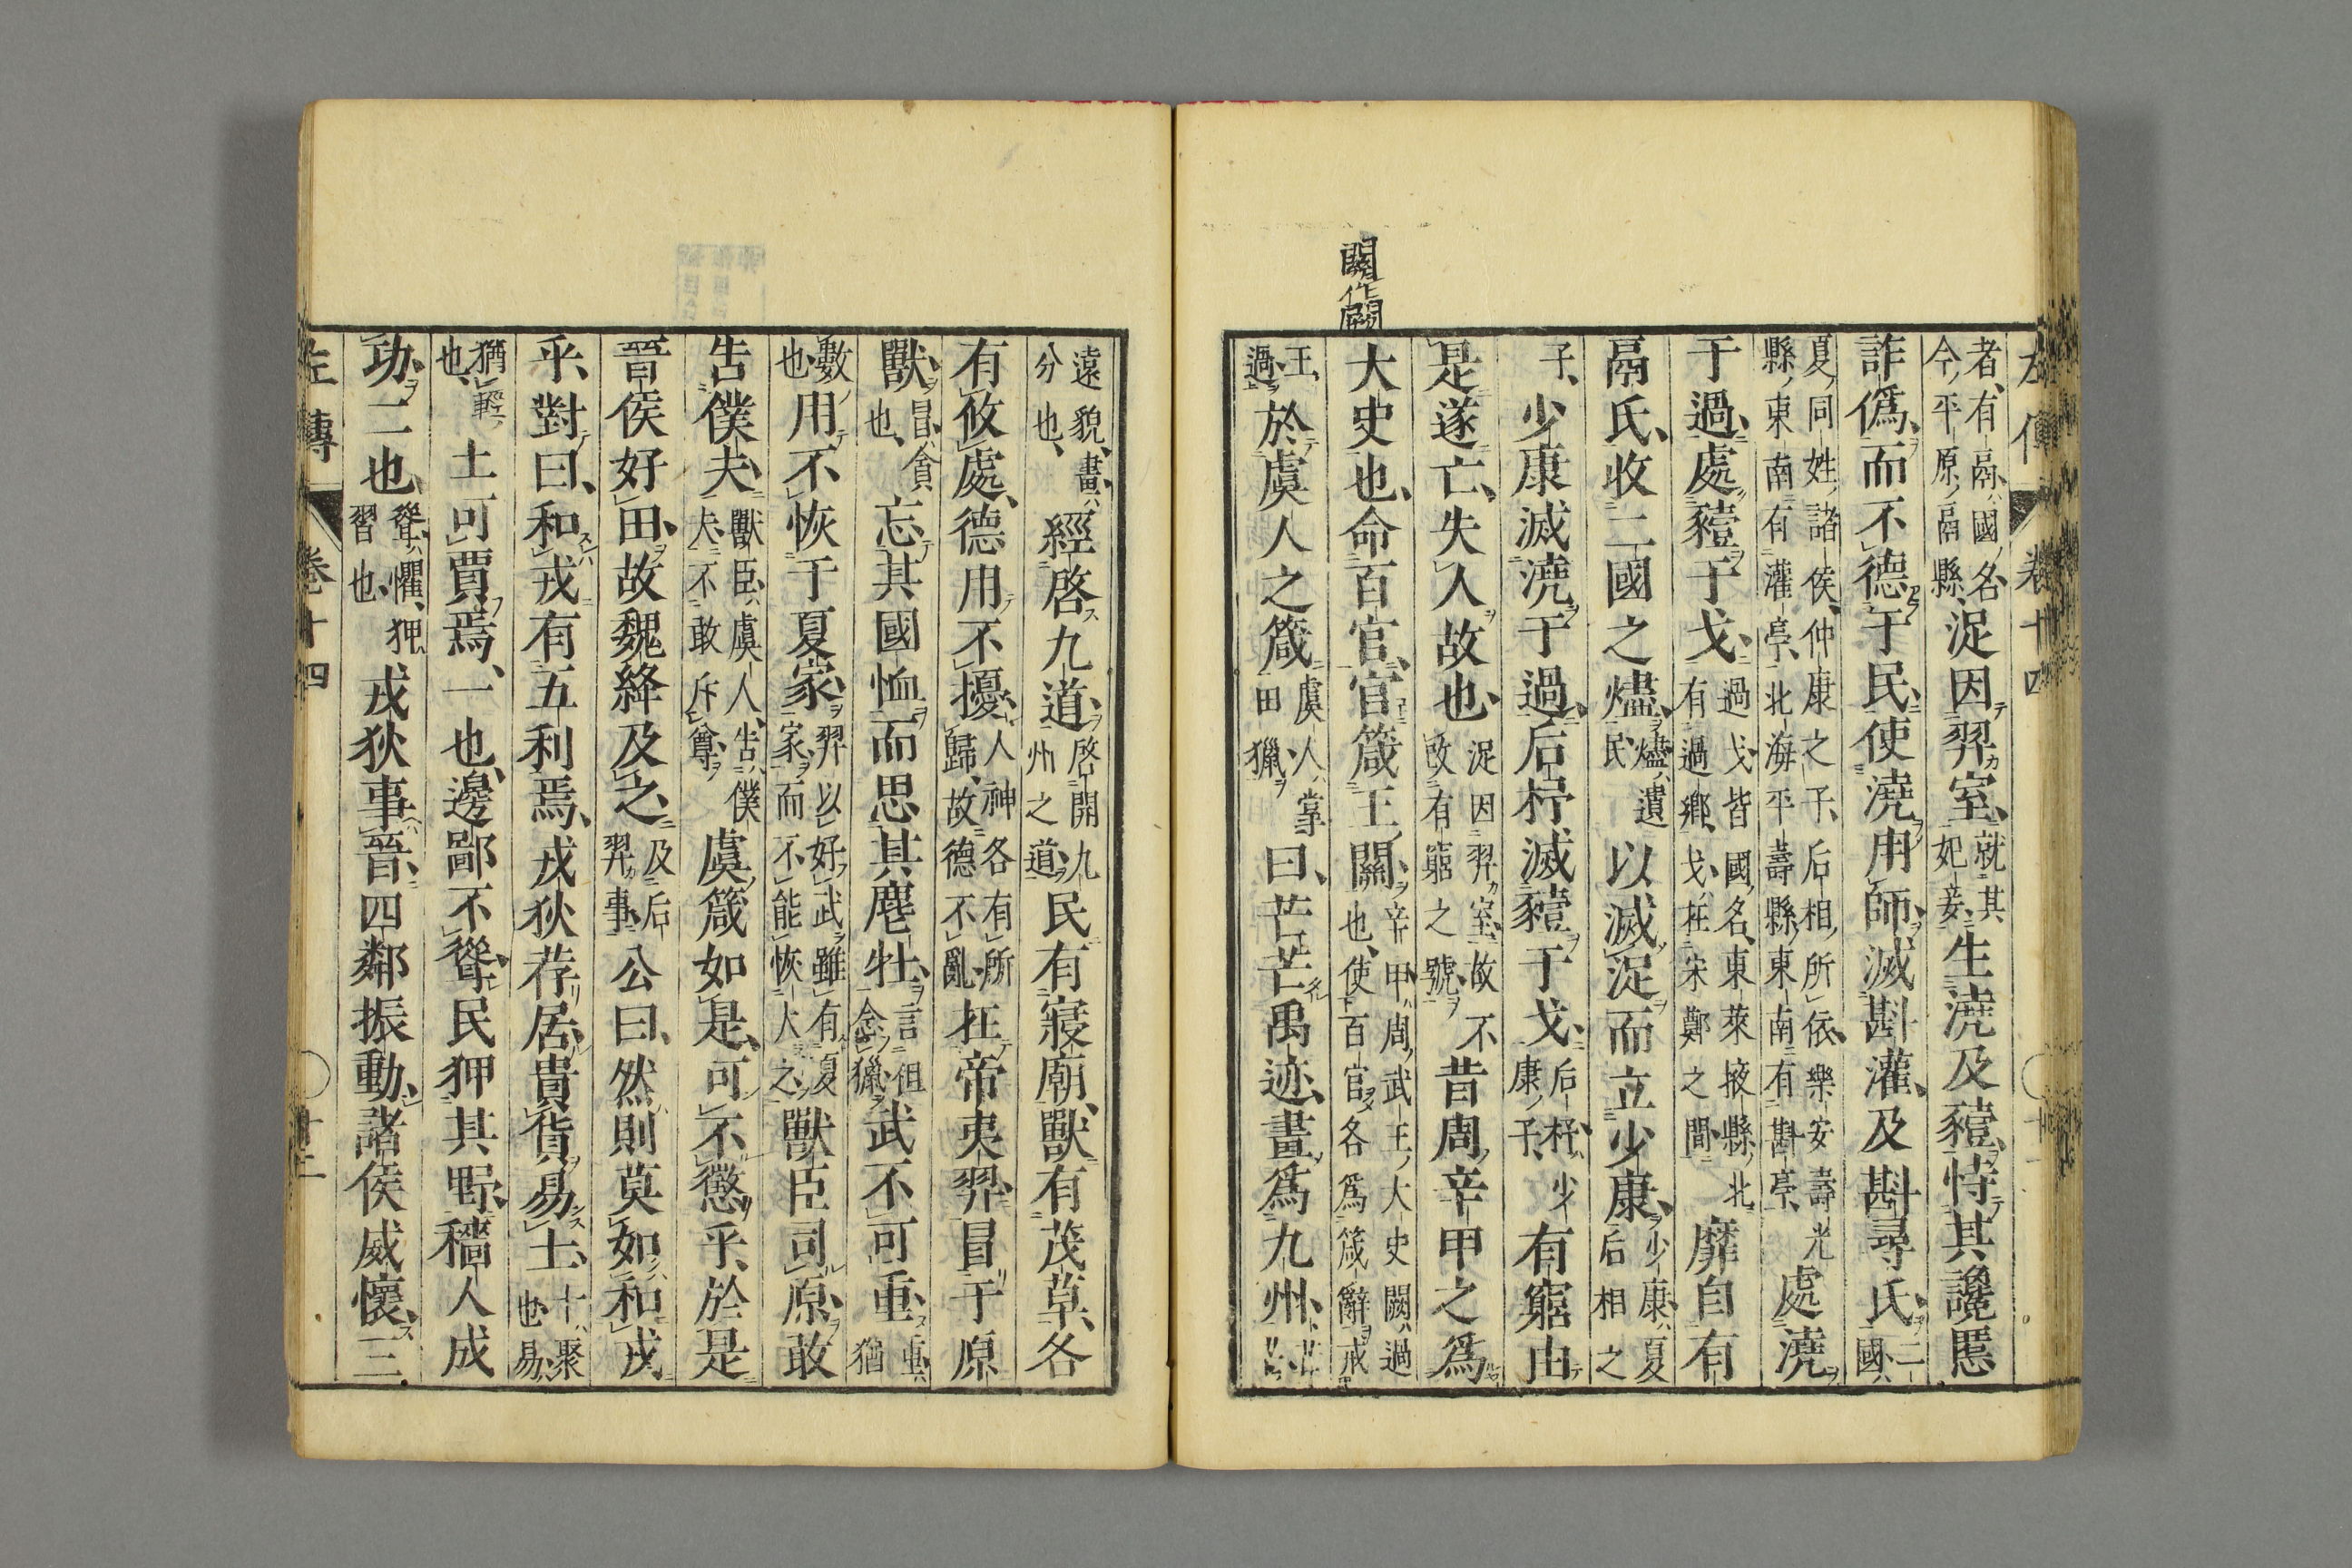 關作闕
左傳 卷十四
者有鬲國名今平原鬲縣浞因羿室就其妃妾生澆及豷恃其讒慝
詐僞而不德于民使澆用師滅斟灌及斟尋氏二國
夏同姓諸侯仲康之子后相所依樂安壽光縣東南有灌亭北海平壽縣東南有斟亭處澆
于過處豷于戈過戈皆國名東萊掖縣北有過鄉戈在宋鄭之間靡自有
鬲氏收二國之燼燼遺民以滅浞而立少康少康夏后相之
子少康滅澆于過后杼滅豷于戈后杼少康子有窮由
是遂亡失人故也浞因羿室故不改有窮之號昔周辛甲之爲
大史也命百官官箴王關辛甲周武王大史闕過也使百官各爲箴辭戒
王過於虞人之箴虞人掌田獵曰芒芒禹迹畫爲九州芒芒
遠貌畫分也經啓九道啓開九州之道民有寢廟獸有茂草各
有攸處德用不擾人神各有所歸故德不亂在帝夷羿冒于原
獸冒貪也忘其國恤而思其麀牡言但念獵武不可重重猶
數也用不恢于夏家羿以好武雖有夏家而不能恢大之獸臣司原敢
告僕夫獸臣虞人告僕夫不敢斥尊虞箴如是可不懲乎於是
晉侯好田故魏絳及之及后羿事公曰然則莫如和戎
乎對曰和戎有五利焉戎狄荐居貴貨易土荐聚也易
猶輕也土可賈焉一也邊鄙不聳民狎其野穡人成
功二也聳懼狎習也戎狄事晉四鄰振動諸侯威懷三
左傳 卷十四 十二